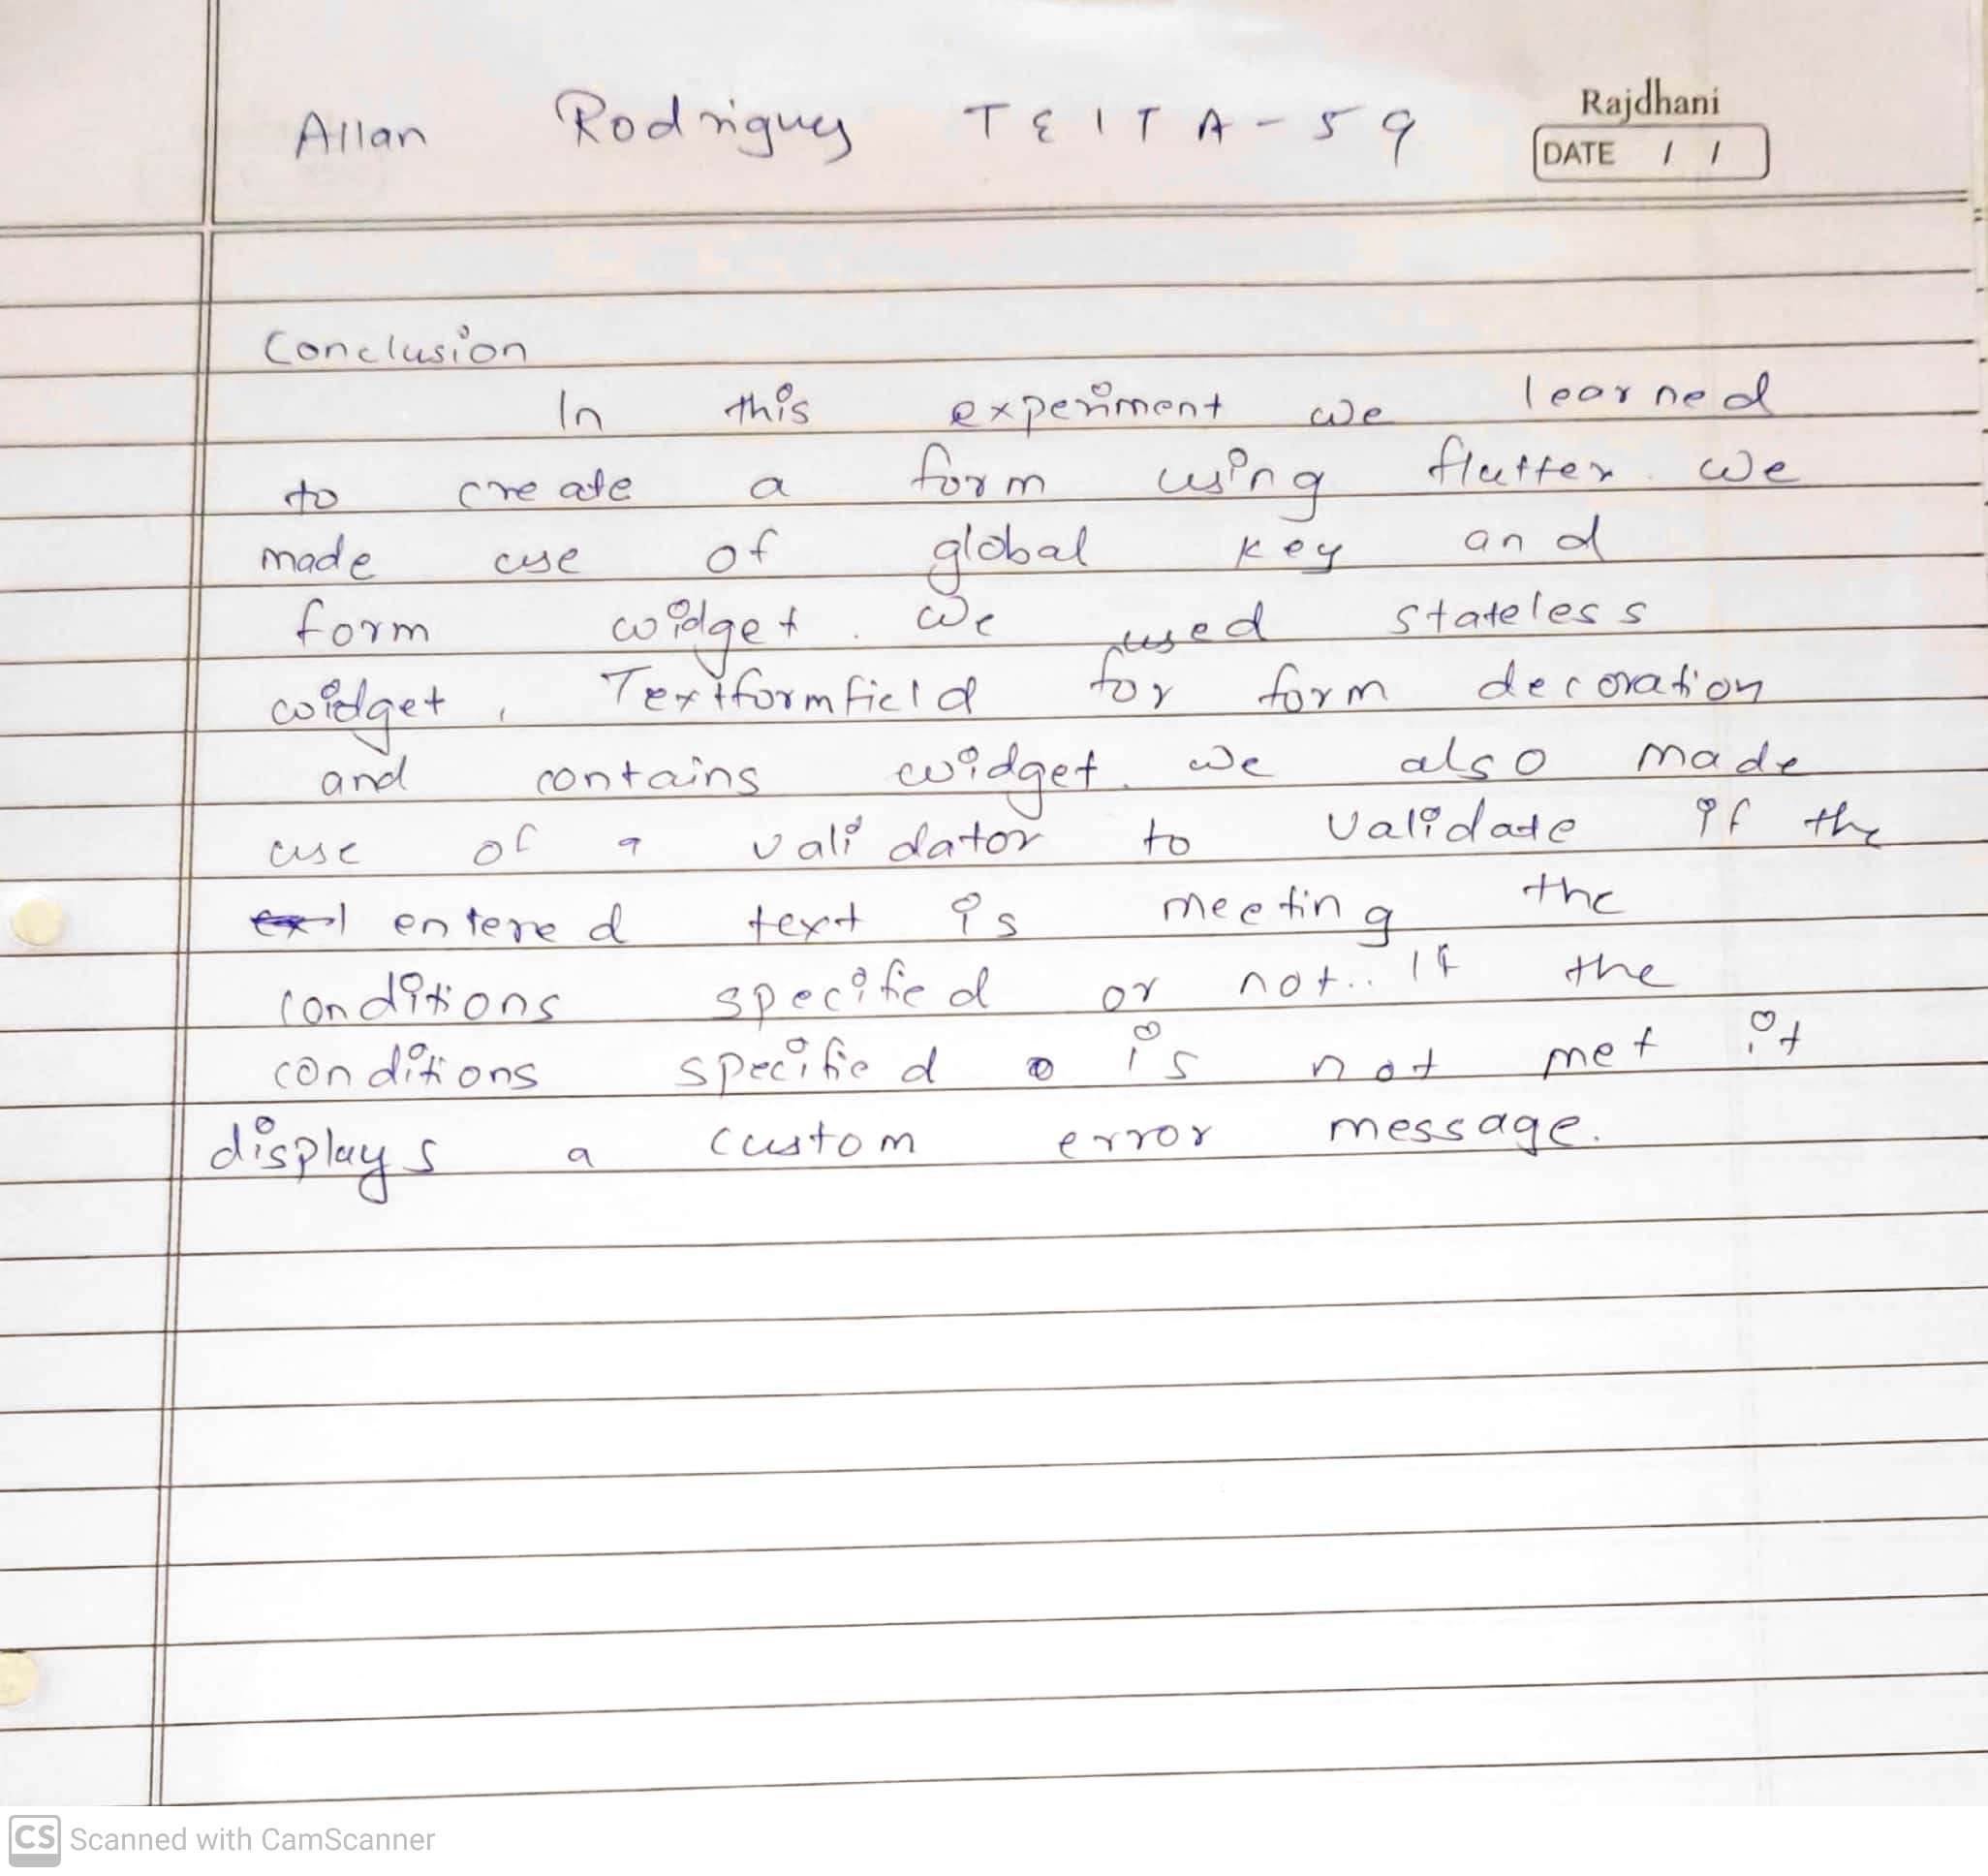 Allan Rodrigues TEITA-59
Rajdhani
DATE / /
Conclusion
In this experiment we learned
to create a form using flutter. we
made use of global key and
form widget. We used stateless
widget, Textformfield for form decoration
and contains widget. we also made
use of a validator to validate if the
entered text is meeting the
conditions specified or not.. If the
conditions specified is not met it
displays a custom error message.
CS Scanned with CamScanner